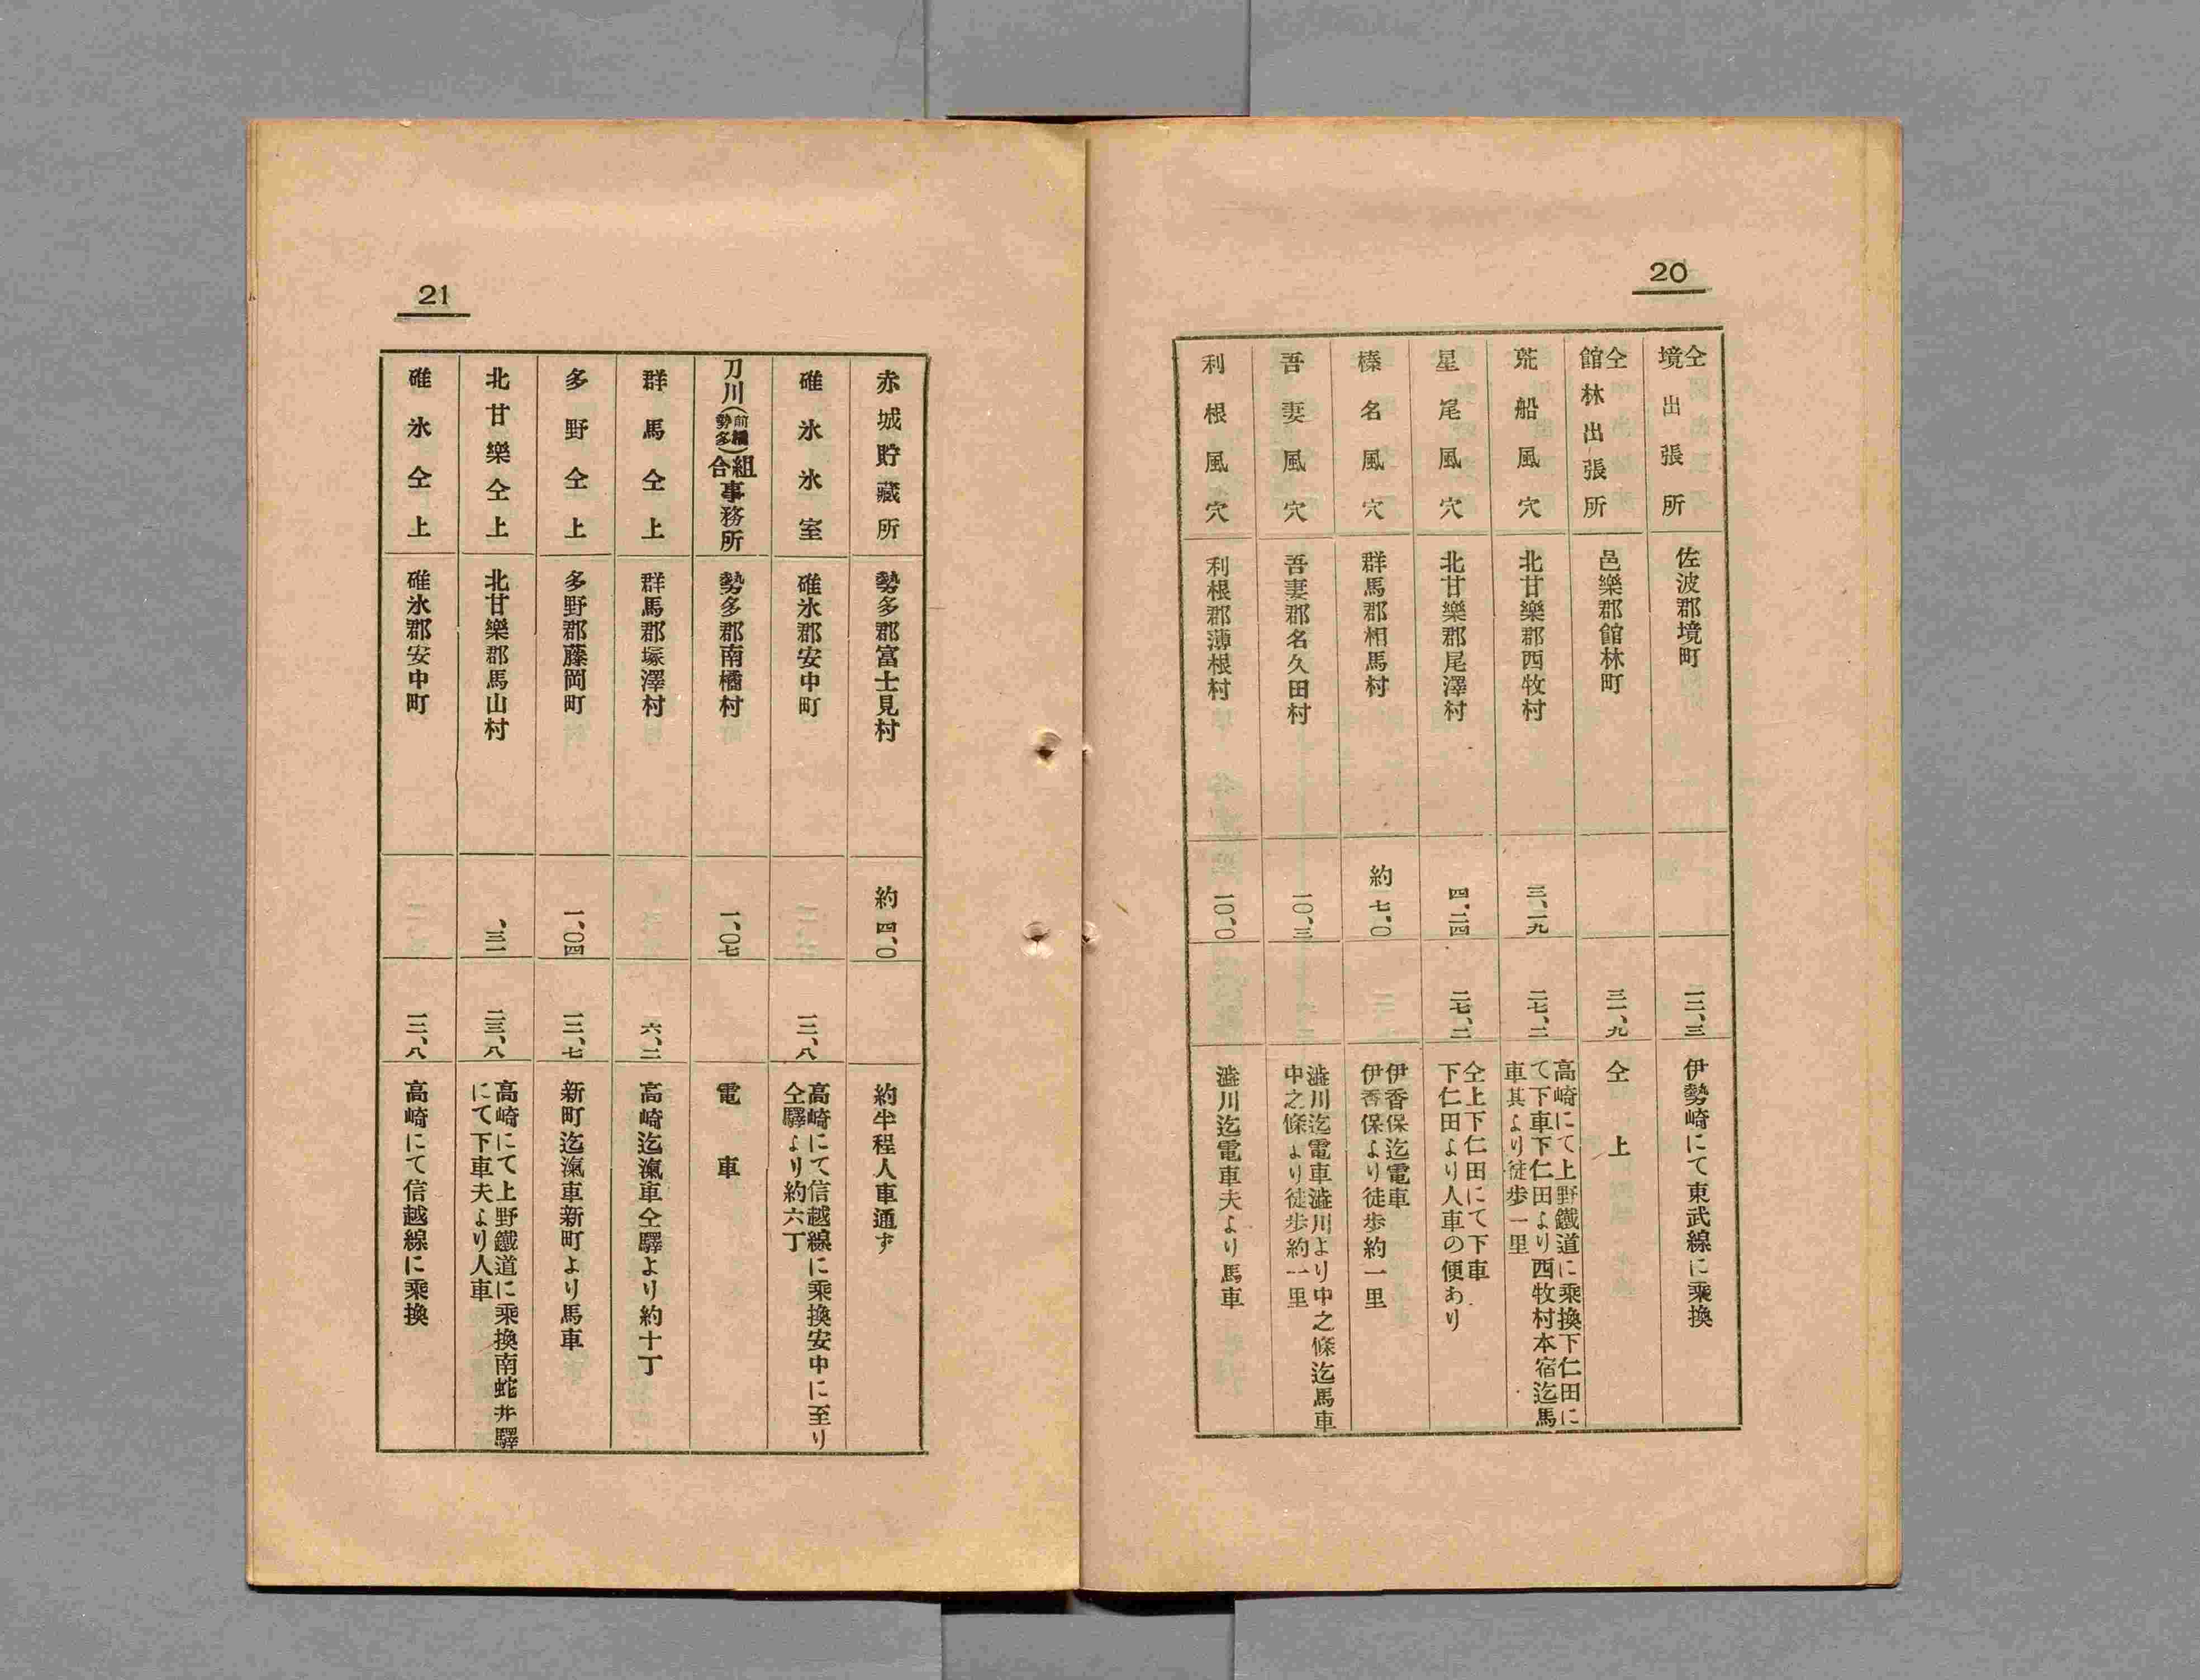 20
仝境出張所
佐波郡境町
一二、三
伊勢崎にて東武線に乗換
仝館林出張所
邑樂郡館林町
三一、九
仝上
荒船風穴
北甘樂郡西牧村
三、二九
二七、二
高崎にて上野鐵道に乗換下仁田に
て下車下仁田より西牧村本宿迄馬
車其より徒歩一里
星尾風穴
北甘樂郡尾澤村
四、二四
二七、二
仝上下仁田にて下車
下仁田より人車の便あり
榛名風穴
群馬郡相馬村
約七、〇
伊香保迄電車
伊香保より徒歩約一里
吾妻風穴
吾妻郡名久田村
一〇、三
澁川迄電車澁川より中之條迄馬車
中之條より徒歩約一里
利根風穴
利根郡薄根村
一〇、〇
澁川迄電車夫より馬車
21
赤城貯藏所
勢多郡富士見村
約四、〇
約半程人車通ず
碓氷氷室
碓氷郡安中町
一二、八
高崎にて信越線に乗換安中に至り
仝驛より約六丁
刀川(前橋勢多)組合事務所
勢多郡南橘村
一、〇七
電車
群馬仝上
群馬郡塚澤村
六、二
高崎迄滊車仝驛より約十丁
多野仝上
多野郡藤岡町
一、〇四
一二、七
新町迄滊車新町より馬車
北甘樂仝上
北甘樂郡馬山村
、三一
二三、八
高崎にて上野鐵道に乗換南蛇井驛
にて下車夫より人車
碓氷仝上
碓氷郡安中町
一二、八
高崎にて信越線に乗換